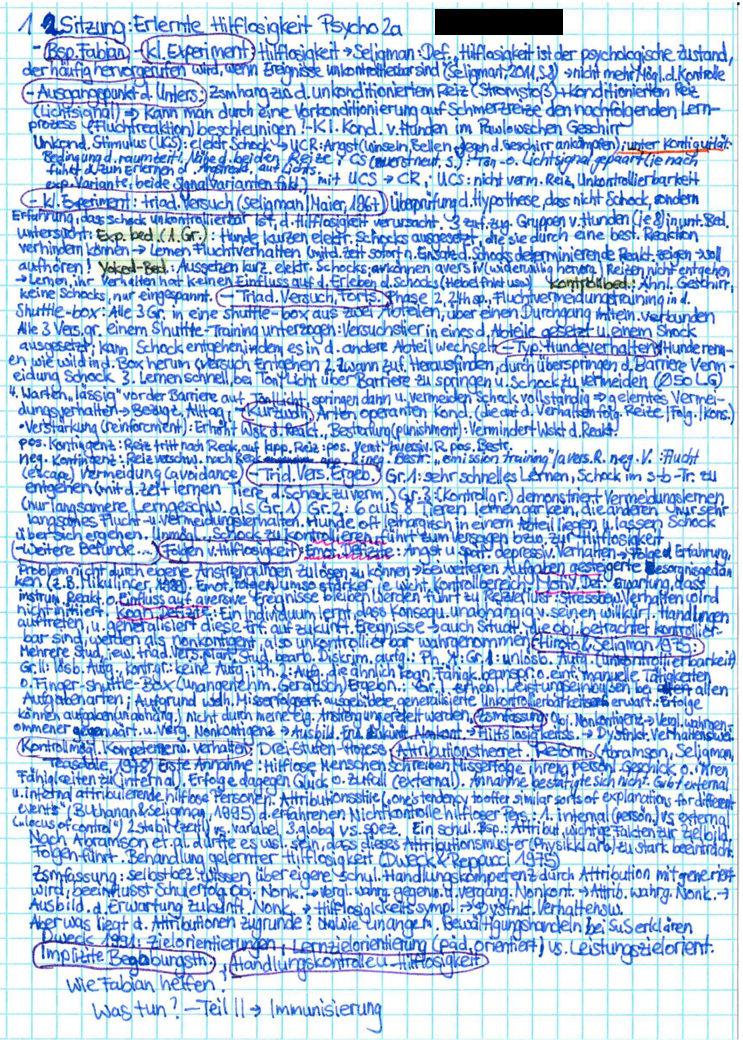 1 2 Sitzung: Erlernte Hilflosigkeit Psycho 2a
- Bsp. Fabian - kl. Experiment Hilflosigkeit → Seligman: Def. Hilflosigkeit ist der psychologische Zustand,
der häufig hervorgerufen wird, wenn Ereignisse unkontrollierbar sind (Seligman, 2011, S.8) → nicht mehr Mögl. d. Kontrolle
- Ausgangspunkt d. Unters.: Zsmhang zw. d. unkonditioniertem Reiz (Stromstoß) + konditionierten Reiz
(Lichtsignal) → Kann man durch eine Vorkonditionierung auf Schmerzreize den nachfolgenden Lern-
prozess (Fluchtreaktion) beschleunigen? - Kl. Kond. v. Hunden im Pawlowschen Geschirr
Unkond. Stimulus (UCS): elektr. Schock → UCR: Angst (Winseln, Bellen, gegen d. Geschirr ankämpfen); unter Kontiguität:
Bedingung d. raumzeitl. Nähe d. beiden Reize; CS (neutr. S.): Ton- o. Lichtsignal gepaart (je nach
führt d. zum Erlernen d. Angstreak. auf Lichts.
exp. Variante, beide Signalvarianten) mit UCS → CR, UCS: nicht verm. Reiz, Unkontrollierbarkeit
- kl. Experiment: triad. Versuch (Seligman/Maier, 1967) Überprüfung d. Hypothese, dass nicht Schock, sondern
Erfahrung, dass Schock unkontrollierbar ist, d. Hilflosigkeit verursacht. 3 zuf. zug. Gruppen v. Hunden (je 8) in unt. Bed.
untersucht: Exp. bed. (1. Gr.): Hunde kurzen elektr. Schocks ausgesetzt, die sie durch eine best. Reaktion
verhindern können → Lernen Fluchtverhalten (mit d. Zeit sofort n. Einsatz d. Schocks determinierende Reakt. zeigen → soll
aufhören! Yoked-Bed.: Aussetzen kurz. elektr. Schocks; können avers. (widerwillig hervorr.) Reizen nicht entgehen
→ Lernen, ihr Verhalten hat keinen Einfluss auf d. Erleben d. Schocks (Hebel fnkt. usw) Kontrollbed.: Ähnl. Geschirr,
keine Schocks, nur eingespannt. - Triad. Versuch, Forts. Phase 2, 24h sp., Fluchtvermeidungstraining in d.
Shuttle-box: Alle 3 Gr. in eine Shuttle-box aus zwei Abteilen, über einen Durchgang miteln. verbunden
Alle 3 Vers.gr. einem Shuttle-Training unterzogen: Versuchstier in eines d. Abteile gesetzt u. einem Shock
ausgesetzt; kann Schock entgehen, indem es in d. andere Abteil wechselt - Typ. Hundeverhalten: Hunde renn-
en wie wild in d. Box herum (versuch. Entgehen 2. Zwang zuf. Herausfinden, durch überspringen d. Barriere Verm-
eidung Schock 3. Lernen schnell, bei Ton/Licht über Barriere zu springen u. Schock zu vermeiden (Ø 50 LG)
4. Warten „lässig" vor der Barriere auf Ton/Licht, springen dann u. vermeiden Schock vollständig → gelerntes Vermei-
dungsverhalten → Bezug z. Alltag - Kurzwdh. Arten operanten Kond. (die auf d. Verhalten folg. Reize/Folg./Kons.)
• Verstärkung (reinforcement): Erhöht Wskt d. Reakt., Bestrafung (punishment): Vermindert Wskt d. Reakt.
pos. Kontingenz: Reiz tritt nach Reak. auf, app. Reiz: pos. Verst. aversiv. R. pos. Bestr.
neg. Kontingenz: Reiz verschw. nach Reak. app. R. neg. Bestr. „omission training"/avers. R. neg. V.: Flucht
(escape), Vermeidung (avoidance) - Triad. Vers. Ergeb. Gr. 1: sehr schnelles Lernen, Schock im s-b-Tr. zu
entgehen (mit d. Zeit lernen Tiere, d. Schock zu verm.) Gr. 3: (Kontrollgr.) demonstriert Vermeidungslernen
(nur langsamere Lerngeschw. als Gr. 1) Gr. 2: 6 aus 8 Tieren lernen gar kein, die anderen 2 nur sehr
langsames Flucht- u. Vermeidungsverhalten. Hunde oft lethargisch in einem Abteil liegen u. lassen Schock
über sich ergehen. Unmögl., Schock zu kontrollieren, führt zum Versagen bzw. zur Hilflosigkeit
- weitere Befunde... Folgen v. Hilflosigkeit: Emot. Defizite: Angst u. spät. depressiv. Verhalten → Folge d. Erfahrung,
Problem nicht durch eigene Anstrengungen zu lösen zu können → bei weiteren Aufgaben gesteigerte Besorgnisgedan-
ken (z.B. Mikulincer, 1989). Emot. Folgen umso stärker, je wicht. Kontrollbereich; Motiv. Def.: Erwartung, dass
instrum. Reakt. o. Einfluss auf aversive Ereignisse bleiben werden führt zu Verhalten wird
nicht initiiert. Kogn. Defizite: Ein Individuum lernt, dass Konsequ. unabhängig v. seinen willkürl. Handlungen
auftreten, u. generalisiert diese Erf. auf zukünft. Ereignisse → auch Situat., die obj. betrachtet kontrollier-
bar sind, werden als nonkontingent also unkontrollierbar wahrgenommen; Hiroto & Seligman 1975:
Mehrere Stud., jew. triad. Vers.plan: Stud. bearb. Diskrim. aufg.: Ph. A: Gr. 1: unlösb. Aufg. (Unkontrollierbarkeit)
Gr. II: lösb. Aufg., Kontr.gr.: keine Aufg.; Th.: Aufg., die ähnlich kogn. Fähigk. beanspr. o. einf. manuelle Tätigkeiten
o. Finger-Shuttle-Box (unangenehm. Geräusch) Ergebn.: Gr. I erhebl. Leistungseinbußen bei allen
Aufgabenarten; Aufgrund wdh. Misserfolgerf. ausgebildete, generalisierte Unkontrollierbarkeitserwart.: Erfolge
können aufgaben(unabhäng.) nicht durch meine eig. Anstreng. erzielt werden. Zsmfassung: Obj. Nonkontingenz → Vergl. wahrgen-
ommener gegenwärt. u. Verg. Nonkontingenz → Ausbild. Erw. zukünft. Nonkont. → Hilflosigkeitss. → Dysfnkt. Verhaltensw.
Kontrollmögl. Kompetenzw. Verhalten: Drei-Stufen-Prozess Attributionstheoret. Reform. (Abramson, Seligman,
Teasdale, 1978) Erste Annahme: Hilflose Menschen schreiben Misserfolge ihrem persönl. Geschick o. ihren
Fähigkeiten zu (internal), Erfolge dagegen Glück o. Zufall (external). Annahme bestätigte sich nicht: Gibt external
u. internal attribuierende hilflose Personen. Attributionsstile („one's tendency to offer similar sorts of explanations for different
events" (Buchanan & Seligman, 1995) d. erfahrenen Nichtkontrolle hilfloser Pers.: 1. internal (person.) vs. external
(„locus of control") 2. stabil (zeitl.) vs. variabel 3. global vs. spez. Ein schul. Bsp.: Attribut. wichtige Fakten zur Zielbild.
Nach Abramson et al. dürfte es wsl. sein, dass dieses Attributionsmuster (Physikklarb.) zu stark beeinträcht.
Folgen führt. Behandlung gelernter Hilflosigkeit (Dweck & Reppucci 1975)
Zsmfassung: selbstbez. Wissen über eigene schul. Handlungskompetenz durch Attribution mit generiert
wird, beeinflusst Schulerfolg Obj. Nonk. → Vergl. wahrg. gegenw. d. vergang. Nonkont. → Attrib. wahrg. Nonk. →
Ausbild. d. Erwartung zukünft. Nonk. → Hilflosigkeitssymp. → Dysfnkt. Verhaltensw.
Aber was liegt d. Attributionen zugrunde? U. wie unangem. Bewältigungshandeln bei SuS erklären
Dweck 1991: Zielorientierungen, Lernzielorientierung (päd. orientiert) vs. Leistungszielorient.
Implizite Begabungsth., Handlungskontrolle u. Hilflosigkeit
Wie Fabian helfen?
Was tun? - Teil II → Immunisierung